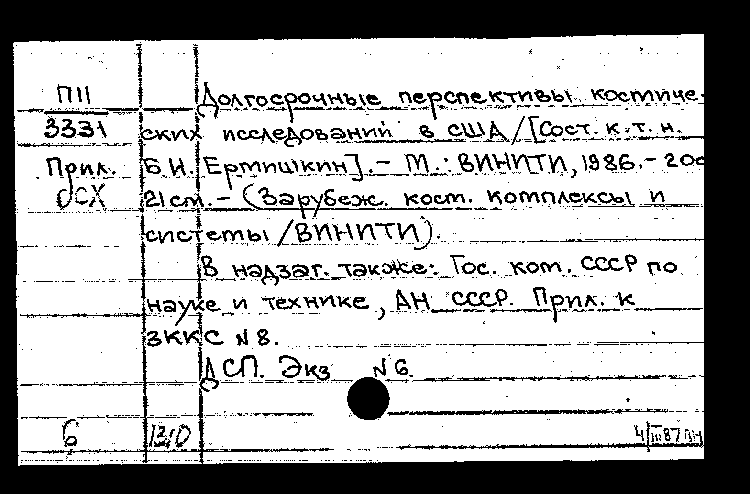 П11
3331
Прил.
ОСХ
Долгосрочные перспективы космиче-
ских исследований в США / [Сост. к.т.н.
Б.И. Ермишкин]. - М.: ВИНИТИ, 1986. - 20с
21 cm. - (Зарубеж. косм. комплексы и
системы / ВИНИТИ).
В надзаг. также: Гос. ком. СССР по
науке и технике, АН СССР. Прил. к
ЗККС N 8.
ДСП. Экз N 6
6 13/0 4/III 87